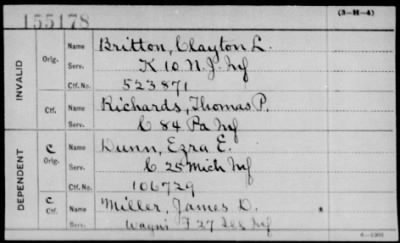 155178
(3-H-4)
INVALID
Orig.
Name
Britton, Clayton L.
Serv.
K 10 N.J. Inf
Ctf. No.
523871
Ctf.
Name
Richards, Thomas P.
Serv.
C 84 Pa Inf
DEPENDENT
C
Orig.
Name
Dunn, Ezra E.
Serv.
C 25 Mich Inf
Ctf. No.
106729
C
Ctf.
Name
Miller, James D.
Serv.
Wagnr F 27 Inf